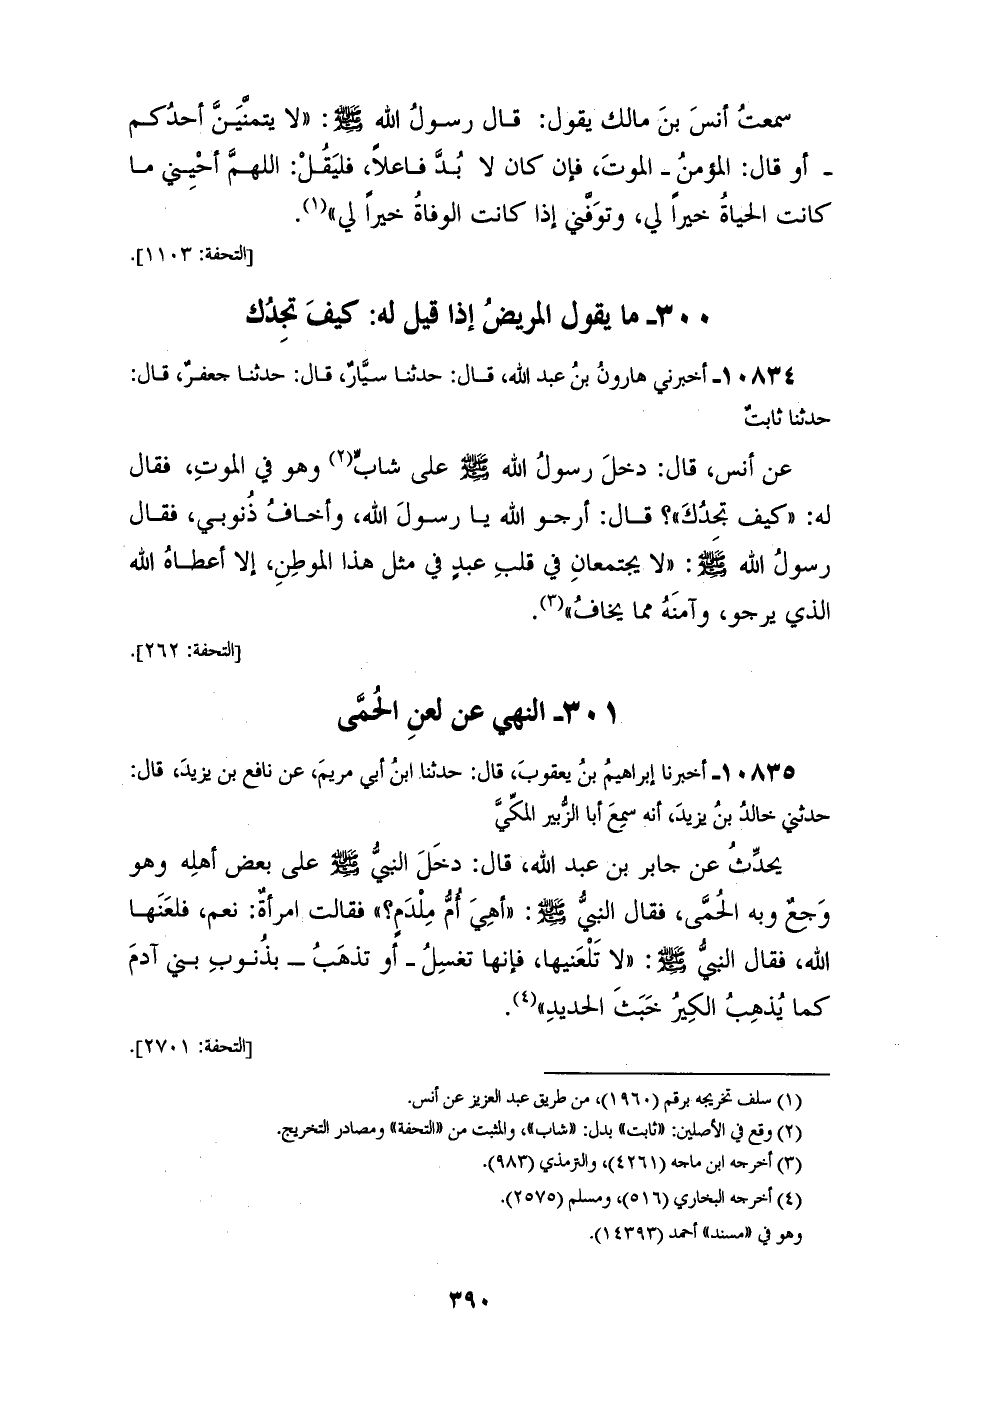 سمعتُ أنسَ بنَ مالك يقول: قـال رسـولُ الله ﷺ: «لا يتمنَّيَـنَّ أحدُكـم
ـ أو قال: المؤمنُ ـ الموتَ، فإن كان لا بُدَّ فـاعلاً، فليَقُـلْ: اللهـمَّ أحْيِـني مـا
كانت الحياةُ خيراً لي، وتوَفَّني إذا كانت الوفاةُ خيراً لي»(١).
[التحفة: ١١٠٣].
٣٠٠ـ ما يقول المريضُ إذا قيل له: كيفَ تجِدُك
١٠٨٣٤ـ أخبرني هارونُ بنُ عبد الله، قـال: حدثنـا سيَّارٌ، قال: حدثنـا جعفـرٌ، قال:
حدثنا ثابتٌ
عن أنس، قال: دخلَ رسولُ الله ﷺ على شابٍّ(٢) وهو في الموتِ، فقال
له: «كيف تجِدُكَ»؟ قـال: أرجـو الله يـا رسـولَ الله، وأخـافُ ذُنوبـي، فقـال
رسولُ الله ﷺ: «لا يجتمعانِ في قلبِ عبدٍ في مثل هذا الموطِنِ، إلا أعطـاهُ الله
الذي يرجو، وآمنَهُ مما يخافُ»(٣).
[التحفة: ٢٦٢].
٣٠١ـ النهي عن لعنِ الحُمَّى
١٠٨٣٥ـ أخبرنا إبراهيمُ بنُ يعقوبَ، قال: حدثنا ابنُ أبي مريمَ، عن نافع بن يزيدَ، قال:
حدثني خالدُ بنُ يزيدَ، أنه سمِعَ أبا الزُّبير المكِّيَّ
يحدِّثُ عن جابر بن عبد الله، قال: دخَلَ النبيُّ ﷺ على بعض أهلِه وهو
وَجِعٌ وبه الحُمَّى، فقال النبيُّ ﷺ: «أهِيَ أُمُّ مِلْدَمٍ؟» فقالت امرأةٌ: نعم، فلعَنَهـا
الله، فقال النبيُّ ﷺ: «لا تَلْعَنيها، فإنها تغسِلُ ـ أو تذهَبُ ـ بذُنـوبِ بـني آدمَ
كما يُذهِبُ الكِيرُ خَبَثَ الحديدِ»(٤).
[التحفة: ٢٧٠١].
(١) سلف تخريجه برقم (١٩٦٠)، من طريق عبد العزيز عن أنس.
(٢) وقع في الأصلين: «ثابت» بدل: «شاب»، والمثبت من «التحفة» ومصادر التخريج.
(٣) أخرجه ابن ماجه (٤٢٦١)، والترمذي (٩٨٣).
(٤) أخرجه البخاري (٥١٦)، ومسلم (٢٥٧٥).
وهو في «مسند» أحمد (١٤٣٩٣).
٣٩٠